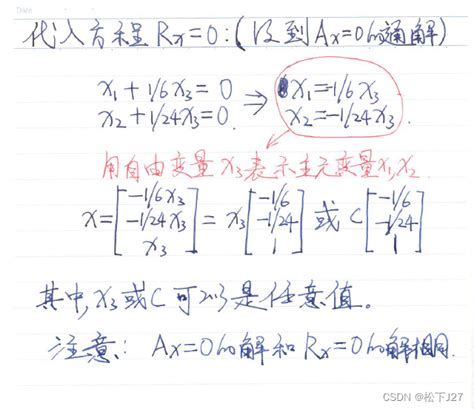 Date
代入方程Rx=0:(得到Ax=0的通解)
x₁+1/6x₃=0 ⇒ x₁=-1/6x₃
x₂+1/24x₃=0. x₂=-1/24x₃.
用自由变量x₃表示主元变量x₁,x₂.
x=[-1/6x₃ -1/24x₃ x₃]=x₃[-1/6 -1/24 1] 或 C[-1/6 -1/24 1]
其中,x₃或C可以是任意值。
注意: Ax=0的解和Rx=0的解相同.
CSDN @松下J27